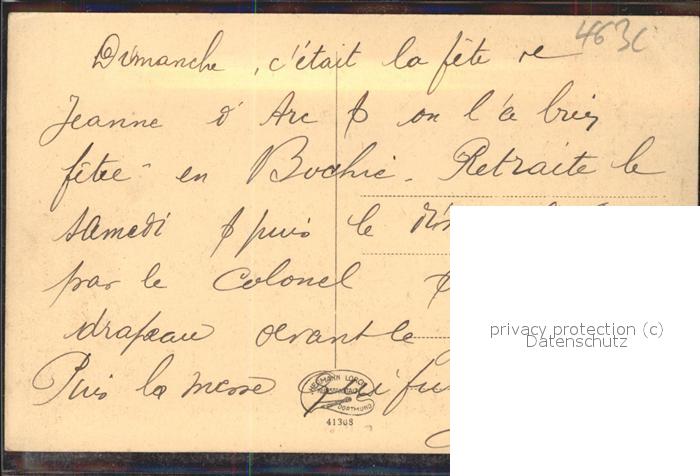 463c
Dimanche, c'était la fête de
Jeanne d'Arc & on l'a bien
fêtée en Bochie. Retraite le
samedi & puis le
par le Colonel &
drapeau devant le
Puis la messe qui fu
privacy protection (c)
Datenschutz
HERMANN LORCH
DORTMUND
41308